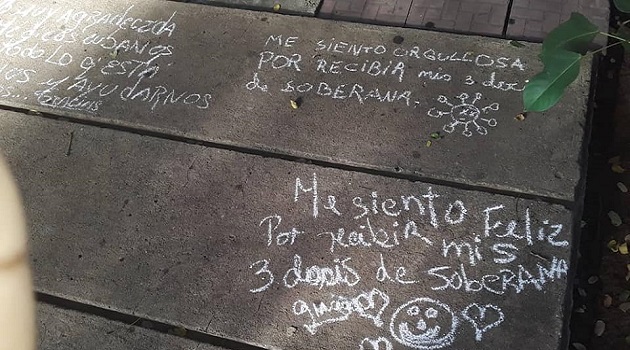 AGRADECIDA
CUBANOS
TODO LO Q ESTA
Y AYUDARNOS
ME SIENTO ORGULLOSA
POR RECIBIR mis 3 doci
de SOBERANA.
Me siento Feliz
Por recibir mis
3 dosis de SOBERANA
gracias